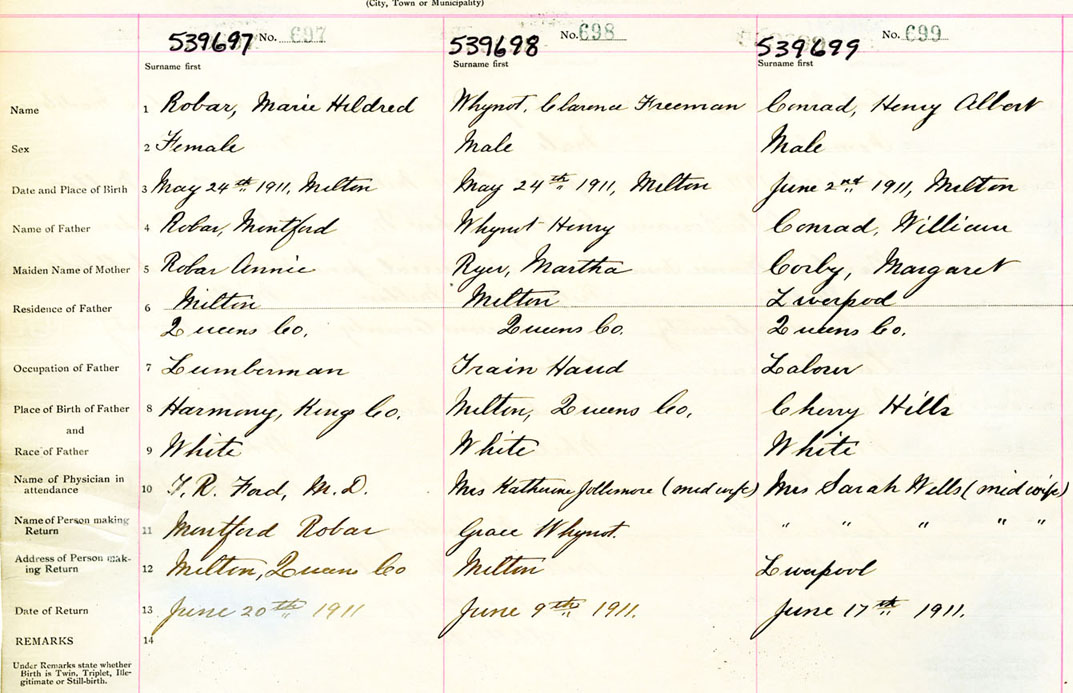 (City, Town or Municipality)
539697 No. 697 539698 No. 698 539699 No. 699
Surname first Surname first Surname first
Name 1 Robar, Marie Hildred Whynot, Clarence Freeman Conrad, Henry Albert
Sex 2 Female Male Male
Date and Place of Birth 3 May 24th 1911, Milton May 24th 1911, Milton June 2nd 1911, Milton
Name of Father 4 Robar, Montford Whynot Henry Conrad, William
Maiden Name of Mother 5 Robar Annie Ryer, Martha Corby, Margaret
Residence of Father 6 Milton Milton Liverpool
Queens Co. Queens Co. Queens Co.
Occupation of Father 7 Lumberman Train Hand Labour
Place of Birth of Father 8 Harmony, King Co. Milton, Queens Co. Cherry Hills
and
Race of Father 9 White White White
Name of Physician in
attendance 10 T. R. Ford, M.D. Mrs Katherine Jollimore (mid wife) Mrs Sarah Wells (mid wife)
Name of Person making
Return 11 Montford Robar Grace Whynot. " " " " "
Address of Person mak-
ing Return 12 Milton, Queens Co Milton Liverpool
Date of Return 13 June 20th 1911 June 9th 1911. June 17th 1911.
REMARKS 14
Under Remarks state whether
Birth is Twin, Triplet, Ille-
gitimate or Still-birth.